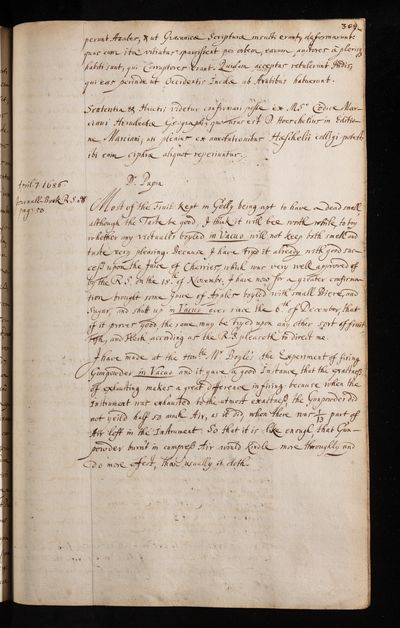 309
perunt Arabes, et ut Graecanicae Scripturae insciti erant, deformarunt:
quas cum ita vitiatas per orbem, earum autores a plerisque
habiti sunt, qui Corruptores erant. Quidam acceptas retulerunt Indis,
qui eas perinde ut Occidentis Incolae ab Arabibus habuerunt.
Sententia Auctis videtur confirmari posse ex MS. Codice Mar-
ciani Heracleotae Geographi, quo usus est D. Hoeschelius in Editio-
ne Marciani, uti plenius ex annotationibus Hoeschelii colligi potest:
ibi eorum ciphrae aliquot reperiuntur.
D.r Papin
April. 7. 1686
Journall-Book R.S. 
pag: 
Most of the Fruits kept in Gelly being apt to have a dead smell
although the Taste be good, I think it will bee worth while, to try
whether any victualls boyled in Vacuo will not keep both smell and
taste very pleasing: Because I have try'd it already with good suc-
cess upon the juice of Cherries, which was very well approved of
by the R.S. on the 18.th of Novemb.r I have now for a greater confirma-
tion brought some Juice of Apples boyled with small Biere, and
Sugar, and shut up in Vacuo ever since the 6.th of December, that
if it proves good the same may be tryed upon any other sort of fruit
Fish, and Flesh according as the R.S. pleaseth to direct me.
I have made at the Hon.ble M.r Boyle's the Experiment of firing
Gunpowder in Vacuo and it gave a good Instance, that the exactness
of exhausting makes a great difference in firing: because when the
Instrument was exhausted to the utmost exactness, the Gunpowder did
not yeild half so much Air, as it did, when there was part of
Air left in the Instrument. So that it is like enough that Gun-
powder burnt in compress't Air would kindle more thoroughly and
do more effect, than usually it doth.